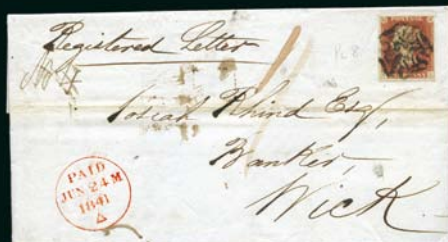 Registered Letter
Pl 8
Josiah Rhind Esqr,
Banker,
Wick
PAID
JUN 24 M
1841